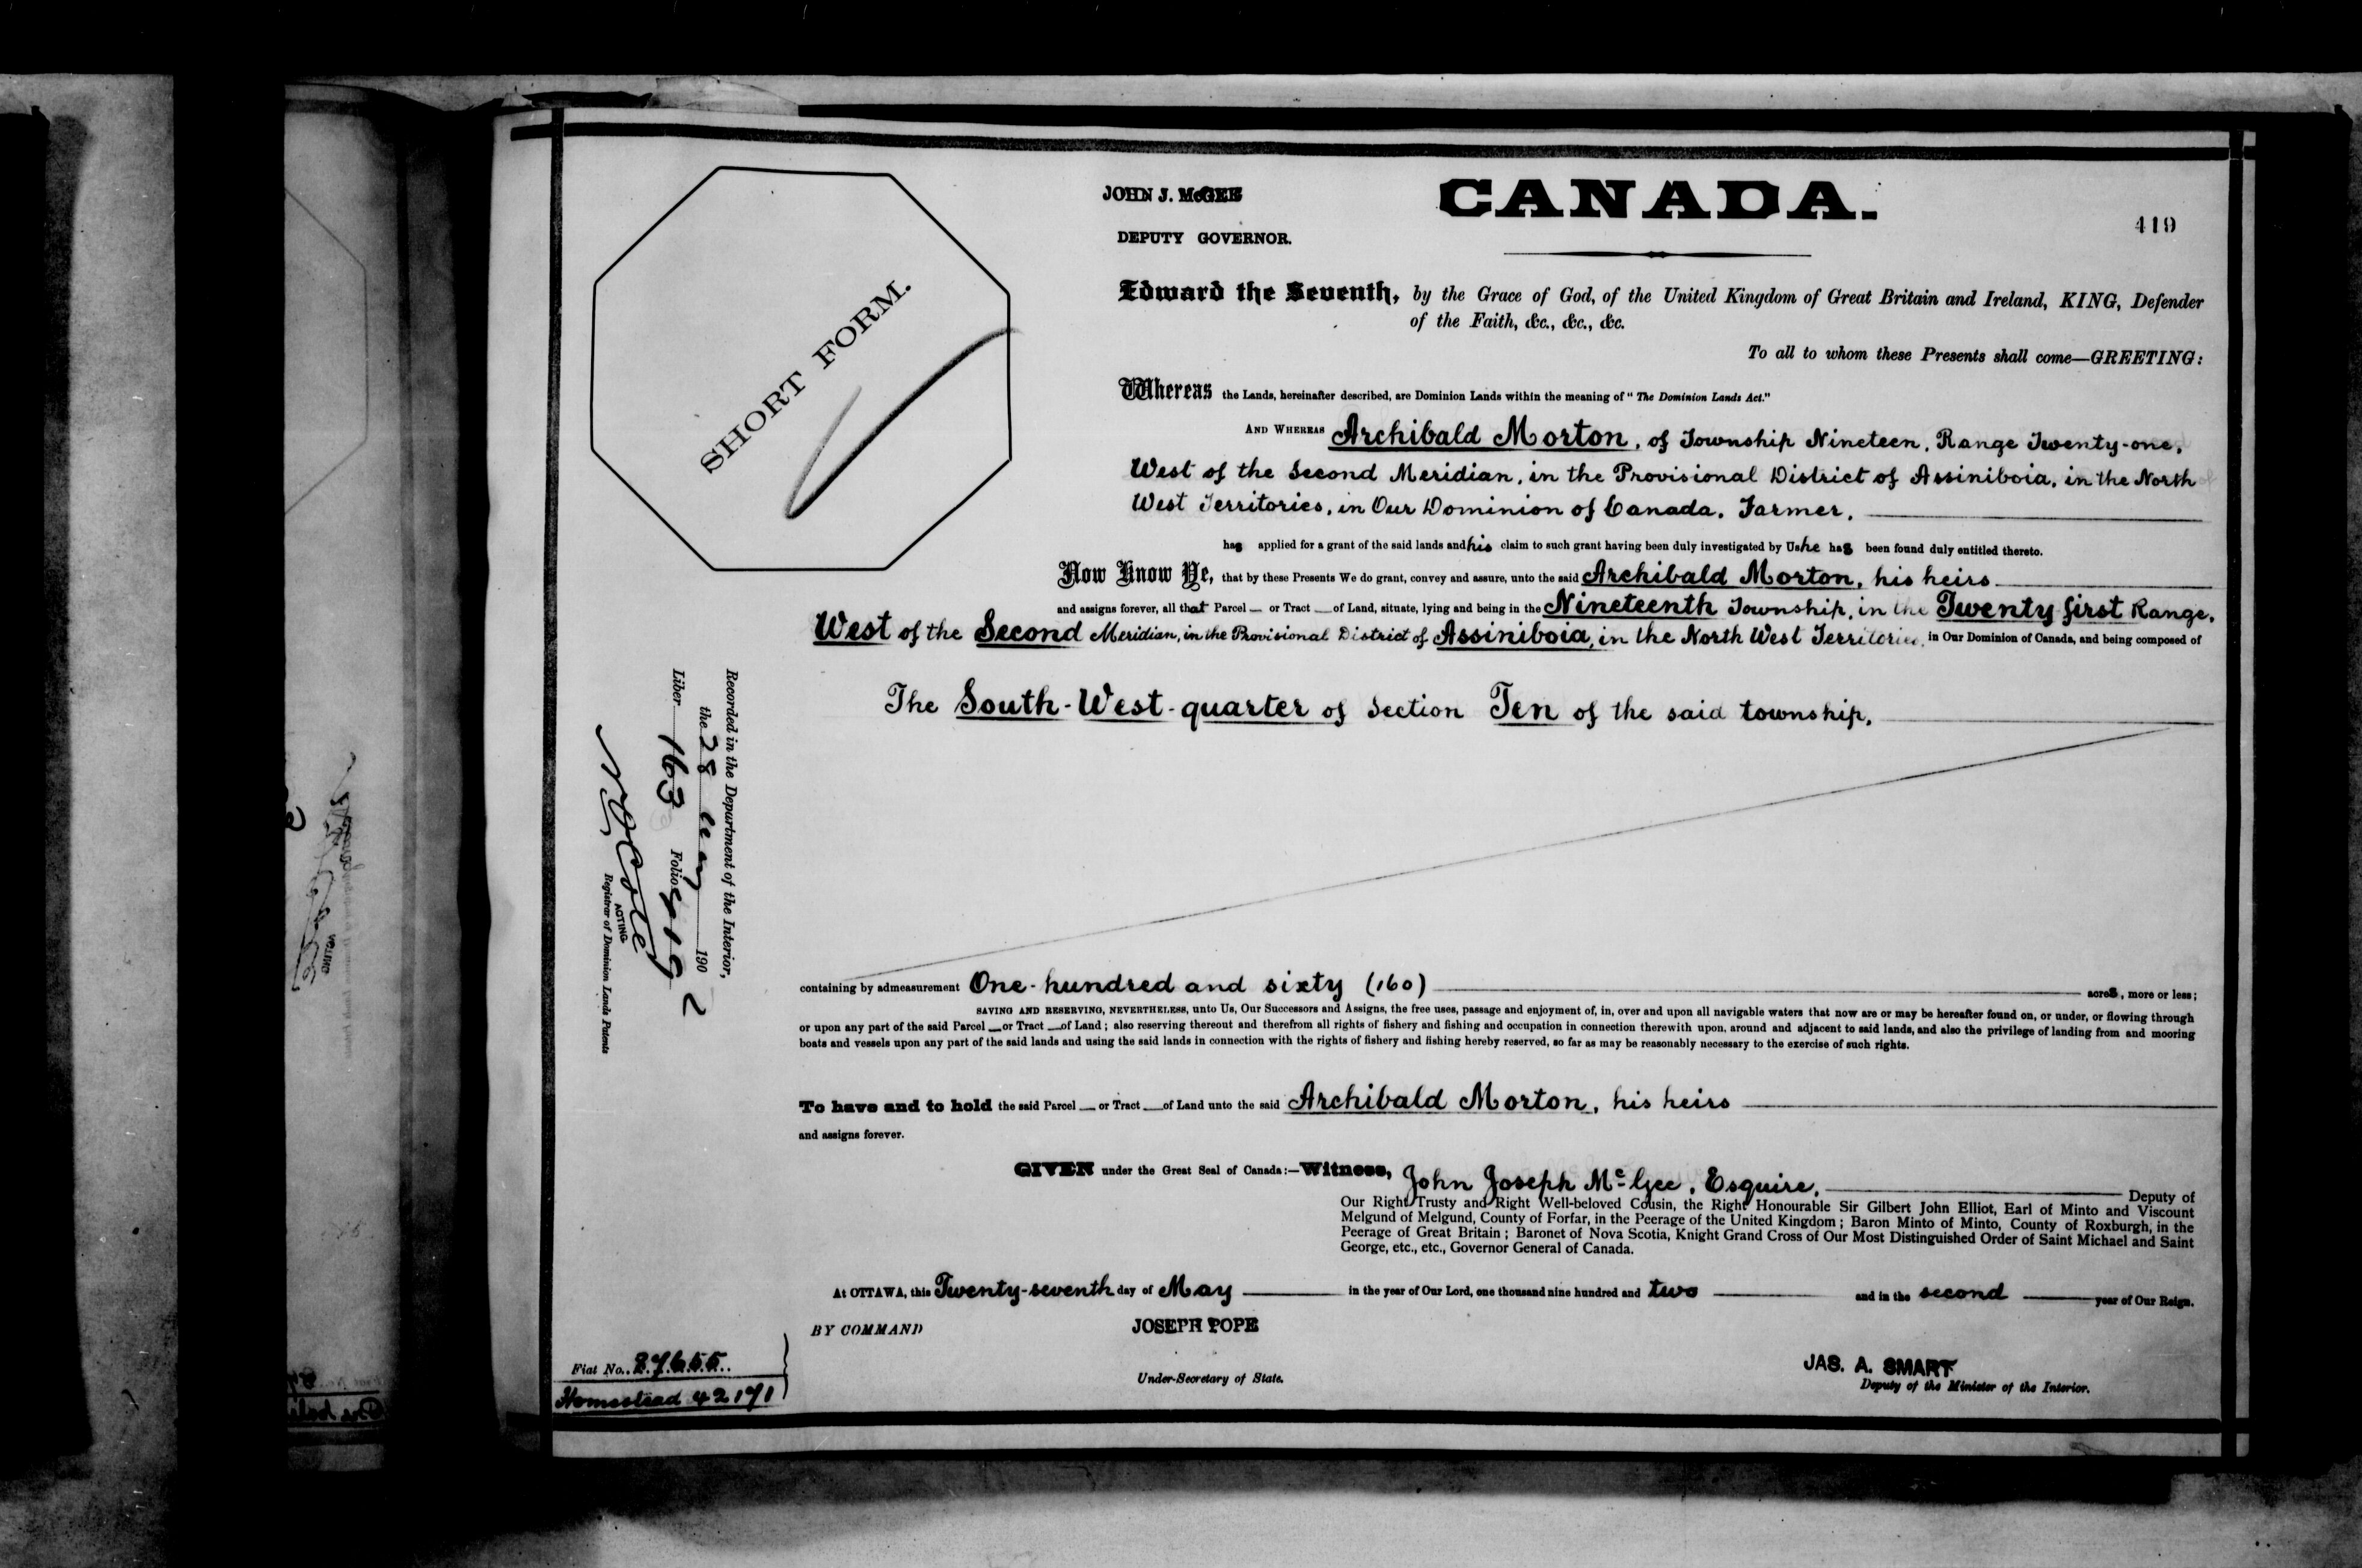 JOHN J. McGEE
CANADA.
DEPUTY GOVERNOR.
419
SHORT FORM.
Edward the Seventh, by the Grace of God, of the United Kingdom of Great Britain and Ireland, KING, Defender
of the Faith, &c., &c., &c.
To all to whom these Presents shall come—GREETING:
Whereas the Lands, hereinafter described, are Dominion Lands within the meaning of "The Dominion Lands Act."
AND WHEREAS Archibald Morton, of Township Nineteen, Range Twenty-one,
West of the Second Meridian, in the Provisional District of Assiniboia, in the North
West Territories, in Our Dominion of Canada, Farmer,
has applied for a grant of the said lands and his claim to such grant having been duly investigated by Us he has been found duly entitled thereto.
Now Know Ye, that by these Presents We do grant, convey and assure, unto the said Archibald Morton, his heirs
and assigns forever, all that Parcel — or Tract — of Land, situate, lying and being in the Nineteenth Township, in the Twenty first Range,
West of the Second Meridian, in the Provisional District of Assiniboia, in the North West Territories, in Our Dominion of Canada, and being composed of
The South-West-quarter of Section Ten of the said township,
Recorded in the Department of the Interior,
the 28 May 1902
Liber 163 Folio 419
N O Coté
ACTING
Registrar of Dominion Lands Patents
containing by admeasurement One hundred and sixty (160) acres, more or less;
SAVING AND RESERVING, NEVERTHELESS, unto Us, Our Successors and Assigns, the free uses, passage and enjoyment of, in, over and upon all navigable waters that now are or may be hereafter found on, or under, or flowing through
or upon any part of the said Parcel — or Tract — of Land; also reserving thereout and therefrom all rights of fishery and fishing and occupation in connection therewith upon, around and adjacent to said lands, and also the privilege of landing from and mooring
boats and vessels upon any part of the said lands and using the said lands in connection with the rights of fishery and fishing hereby reserved, so far as may be reasonably necessary to the exercise of such rights.
To have and to hold the said Parcel — or Tract — of Land unto the said Archibald Morton, his heirs
and assigns forever.
GIVEN under the Great Seal of Canada:—Witness, John Joseph McGee, Esquire, Deputy of
Our Right Trusty and Right Well-beloved Cousin, the Right Honourable Sir Gilbert John Elliot, Earl of Minto and Viscount
Melgund of Melgund, County of Forfar, in the Peerage of the United Kingdom; Baron Minto of Minto, County of Roxburgh, in the
Peerage of Great Britain; Baronet of Nova Scotia, Knight Grand Cross of Our Most Distinguished Order of Saint Michael and Saint
George, etc., etc., Governor General of Canada.
At OTTAWA, this Twenty-seventh day of May in the year of Our Lord, one thousand nine hundred and two and in the second year of Our Reign.
BY COMMAND
JOSEPH POPE
Under-Secretary of State.
JAS. A. SMART
Deputy of the Minister of the Interior.
Fiat No. 87655
Homestead 42171